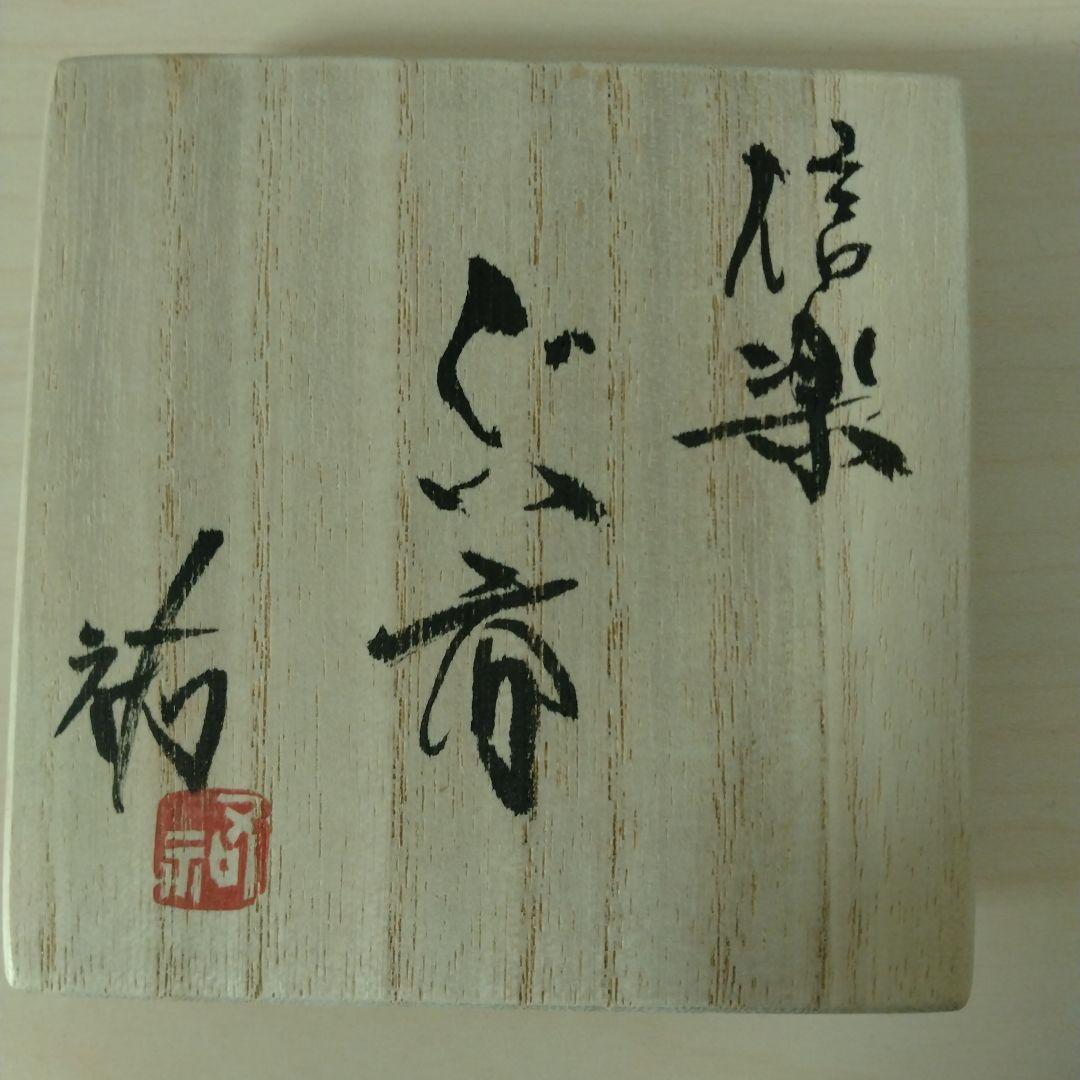 信楽
ぐい呑
祐
祐